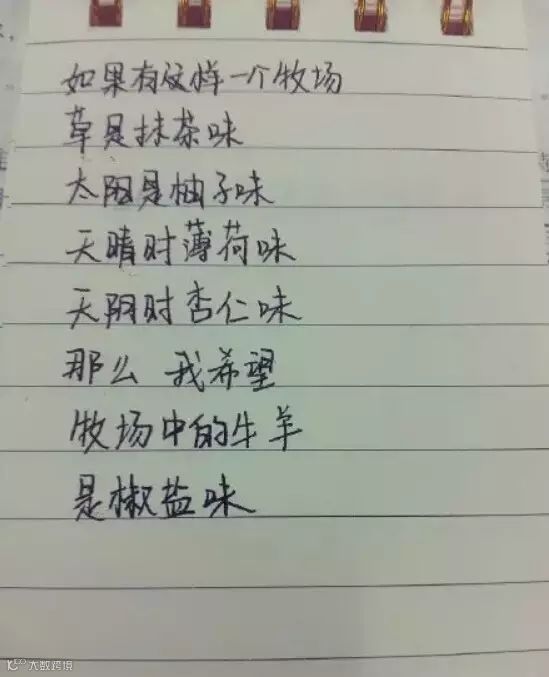 如果有这样一个牧场
草是抹茶味
太阳是柚子味
天晴时薄荷味
天阴时杏仁味
那么 我希望
牧场中的牛羊
是椒盐味
大数跨境